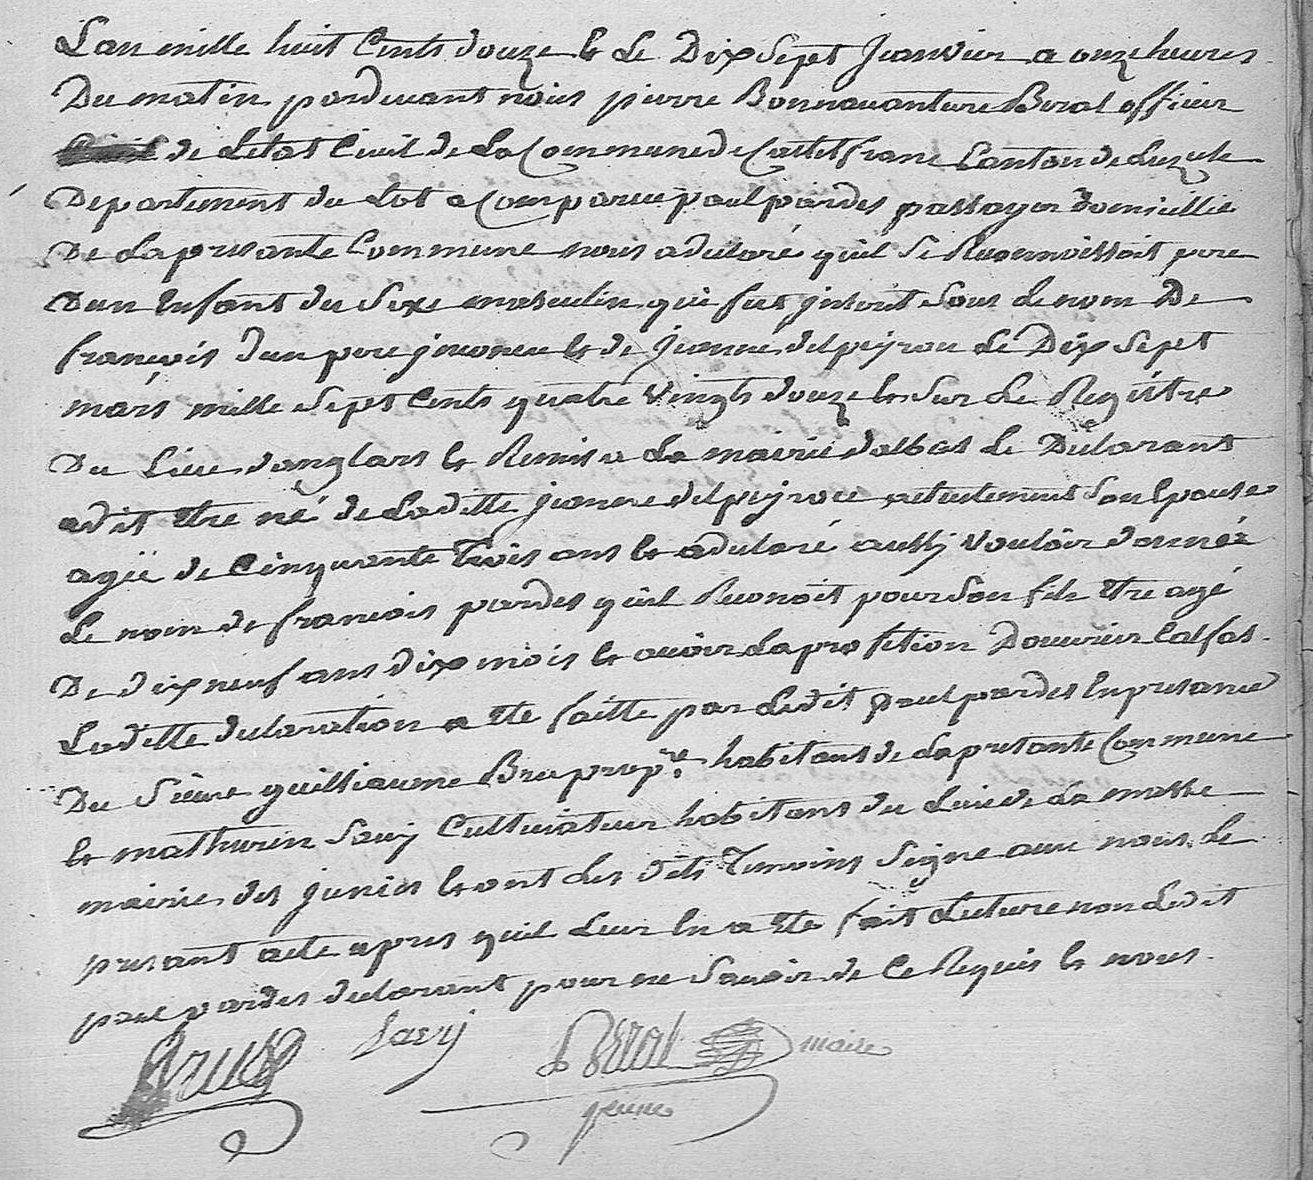 Lan mille huit Cents douze & Le Dix Sept Janvier a onze heures
Du matin pardevant nous pierre Bonnavanture Beral officier
de Letat Civil de La Commune de Castelfranc Canton de Luzech
Departement du Lot a Comparu paul pardes passager domicillié
De La presante Commune nous a declaré quil Se Reconnoissoit pere
Dun Enfant du Sexe masculin qui fut inscrit Sous Le nom De
françois dun pere inconeu & de Jeanne delpeyrou Le Dix Sept
mars mille Sept Cents quatre vingts douze & Sur Le Registre
Du Lieu danglars & Remis a La mairie dalbas Le Declarant
a dit Etre né de Laditte jeanne delpeyrou actuelement Son Epouse
agée de Cinquante trois ans & a declaré aussy vouloir donner
Le nom de francois pardes quil Reconoit pour Son fils Etre agé
De dix neuf ans dix mois & avoir La profession Douvrier Calfat.
Laditte declaration a Ete faitte par Ledit paul pardes En presance
Du Sieur guilliaume Bru propre. habitant de La presante Commune
& mathurin Savy Cultivateur habitant du Lieu de La masse
mairie des junies & ont Les dits Temoins Signe avec nous Le
presant acte apres quil Leur En a Ete fait Lecture non Ledit
paul pardes declarant pour ne Savoir de Ce Requis & nous.
Bru Savy Beral maire
jeune